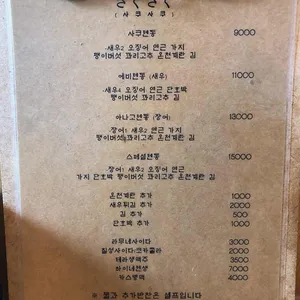 さくさく
( 사쿠사쿠 )
사쿠텐동 9000
-새우2 오징어 연근 가지
팽이버섯 꽈리고추 온천계란 김
에비텐동 (새우) 11000
-새우4 오징어 연근 단호박
팽이버섯 꽈리고추 김
아나고텐동 (장어) 13000
-장어1 새우2 연근 가지
팽이버섯 꽈리고추 온천계란 김
스페셜텐동 15000
-장어1 새우2 오징어 연근
가지 단호박 팽이버섯 꽈리고추 온천계란 김
온천계란 추가 1000
새우튀김 추가 2000
김 추가 500
단호박 추가 1000
라무네사이다 3000
칠성사이다/코카콜라 2000
테라생맥주 3500
하이네켄생 7000
카스병맥 4000
※ 물과 추가반찬은 셀프입니다